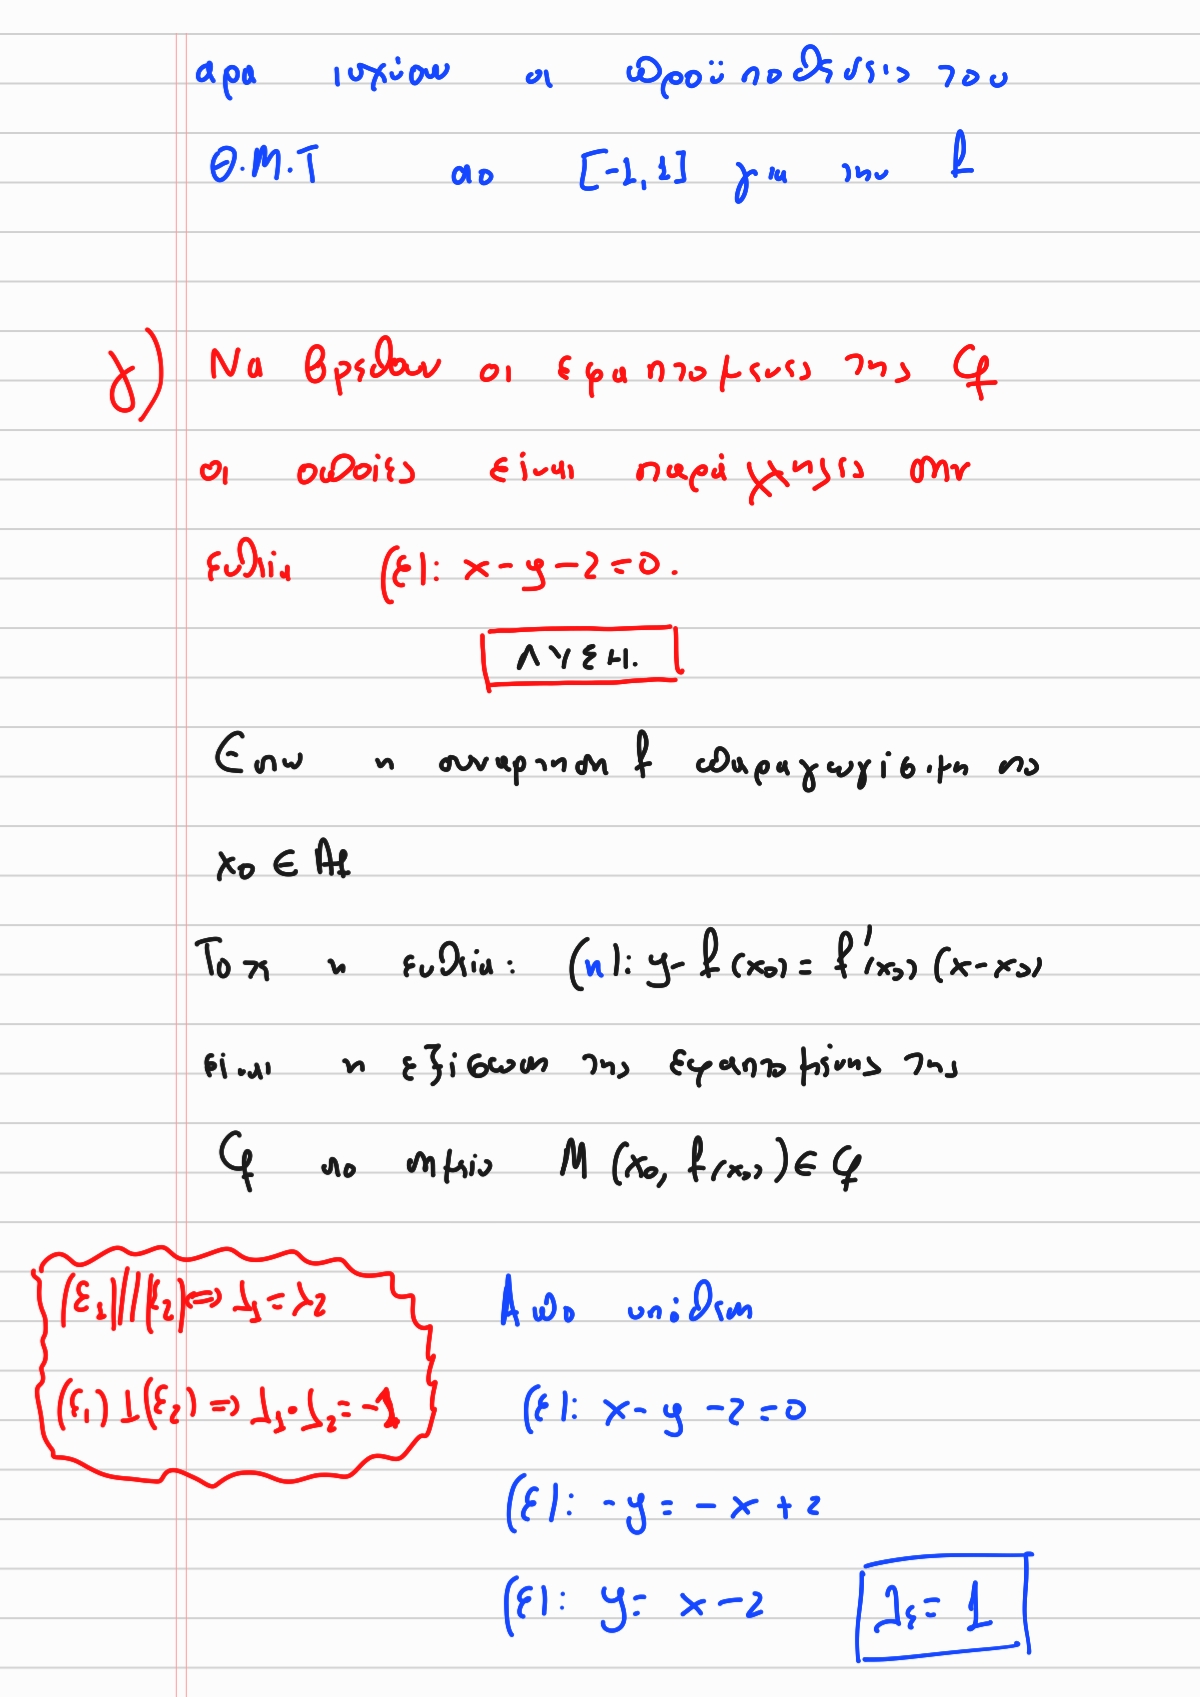 αρα ισχύουν οι προϋποθέσεις του
Θ.Μ.Τ στο [-1,1] για την f
γ) Να βρεθουν οι εφαπτομενες της Cf
οι οποίες είναι παράλληλες στην
ευθεία (ε): x-y-2=0.
ΛΥΣΗ.
Εστω η συναρτηση f παραγωγίσιμη στο
x₀ ∈ Af
Τοτε η ευθεία: (η): y-f(x₀)=f'(x₀)(x-x₀)
είναι η εξίσωση της εφαπτομένης της
Cf στο σημείο M(x₀, f(x₀))∈ Cf
(ε₁)//(ε₂)⇔ λ₁=λ₂
(ε₁)⊥(ε₂)⇒ λ₁·λ₂=-1
Απο υπόθεση
(ε): x-y-2=0
(ε): -y=-x+2
(ε): y=x-2 λε=1